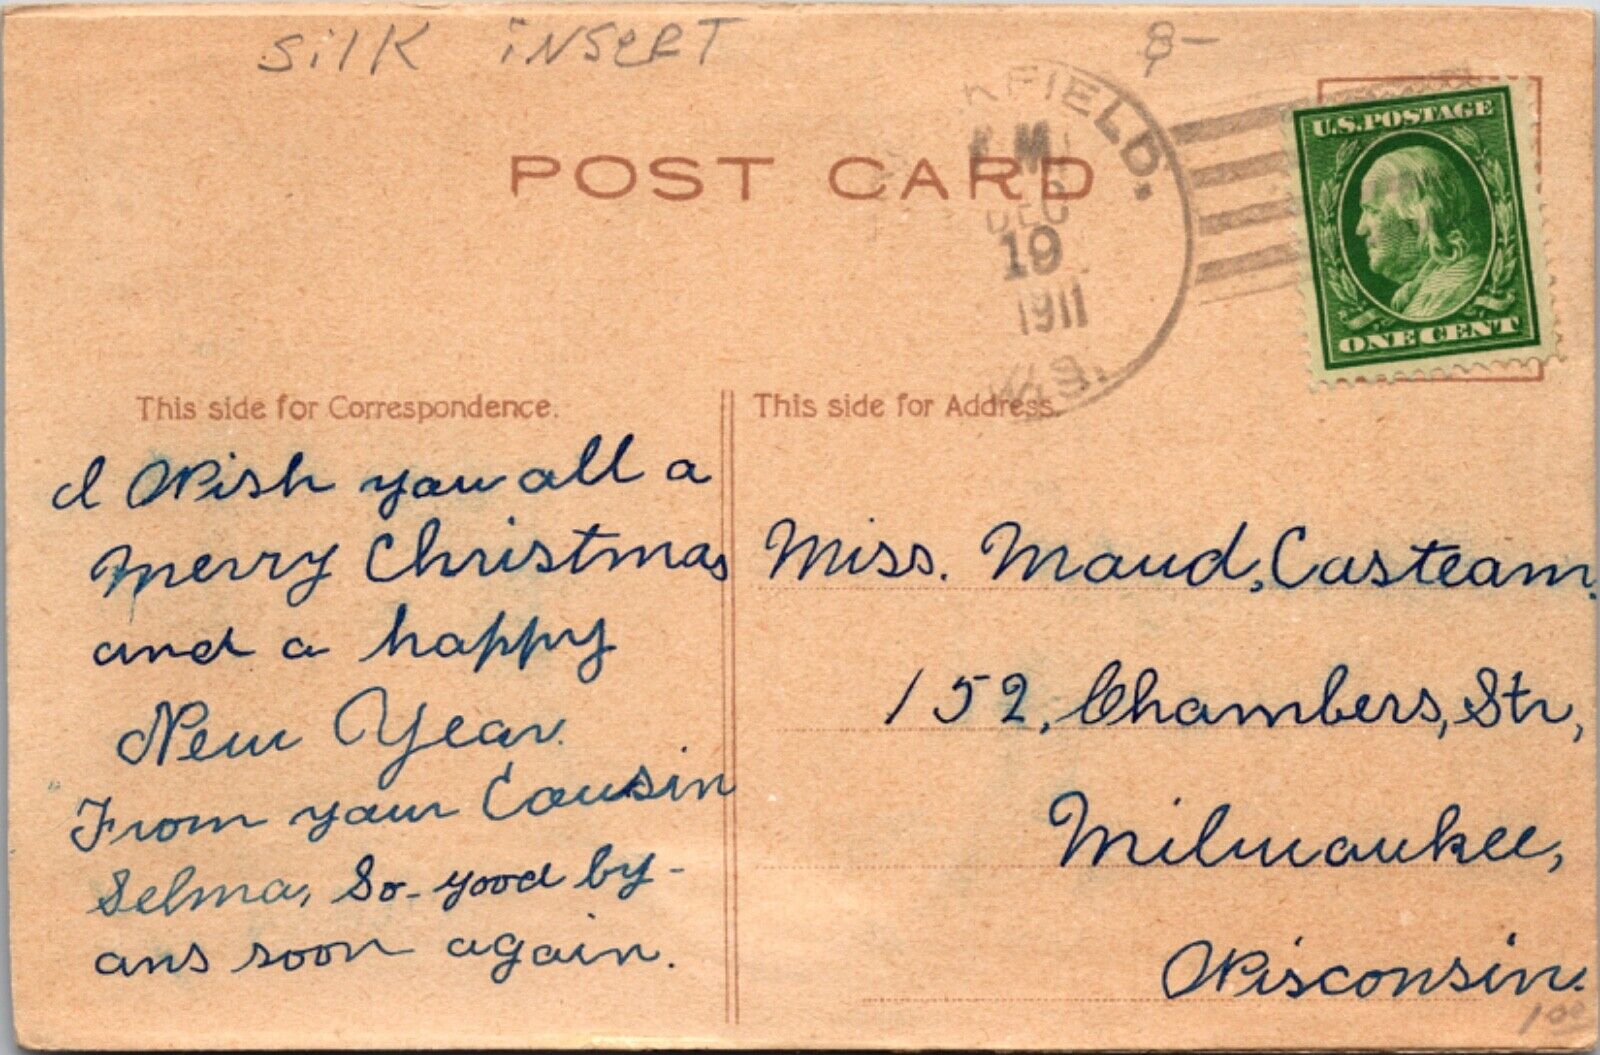 SilK inseRT
8-
KFIELD.
M
DEC
19
1911
WIS.
U.S. POSTAGE
ONE CENT
POST CARD
This side for Correspondence.
I Wish you all a
merry Christmas
and a happy
New Year.
From your Cousin
Selma, So-good by-
ans soon again.
This side for Address.
Miss. Maud, Casteam.
152, Chambers, Str,
Milwaukee,
Wisconsin.
100